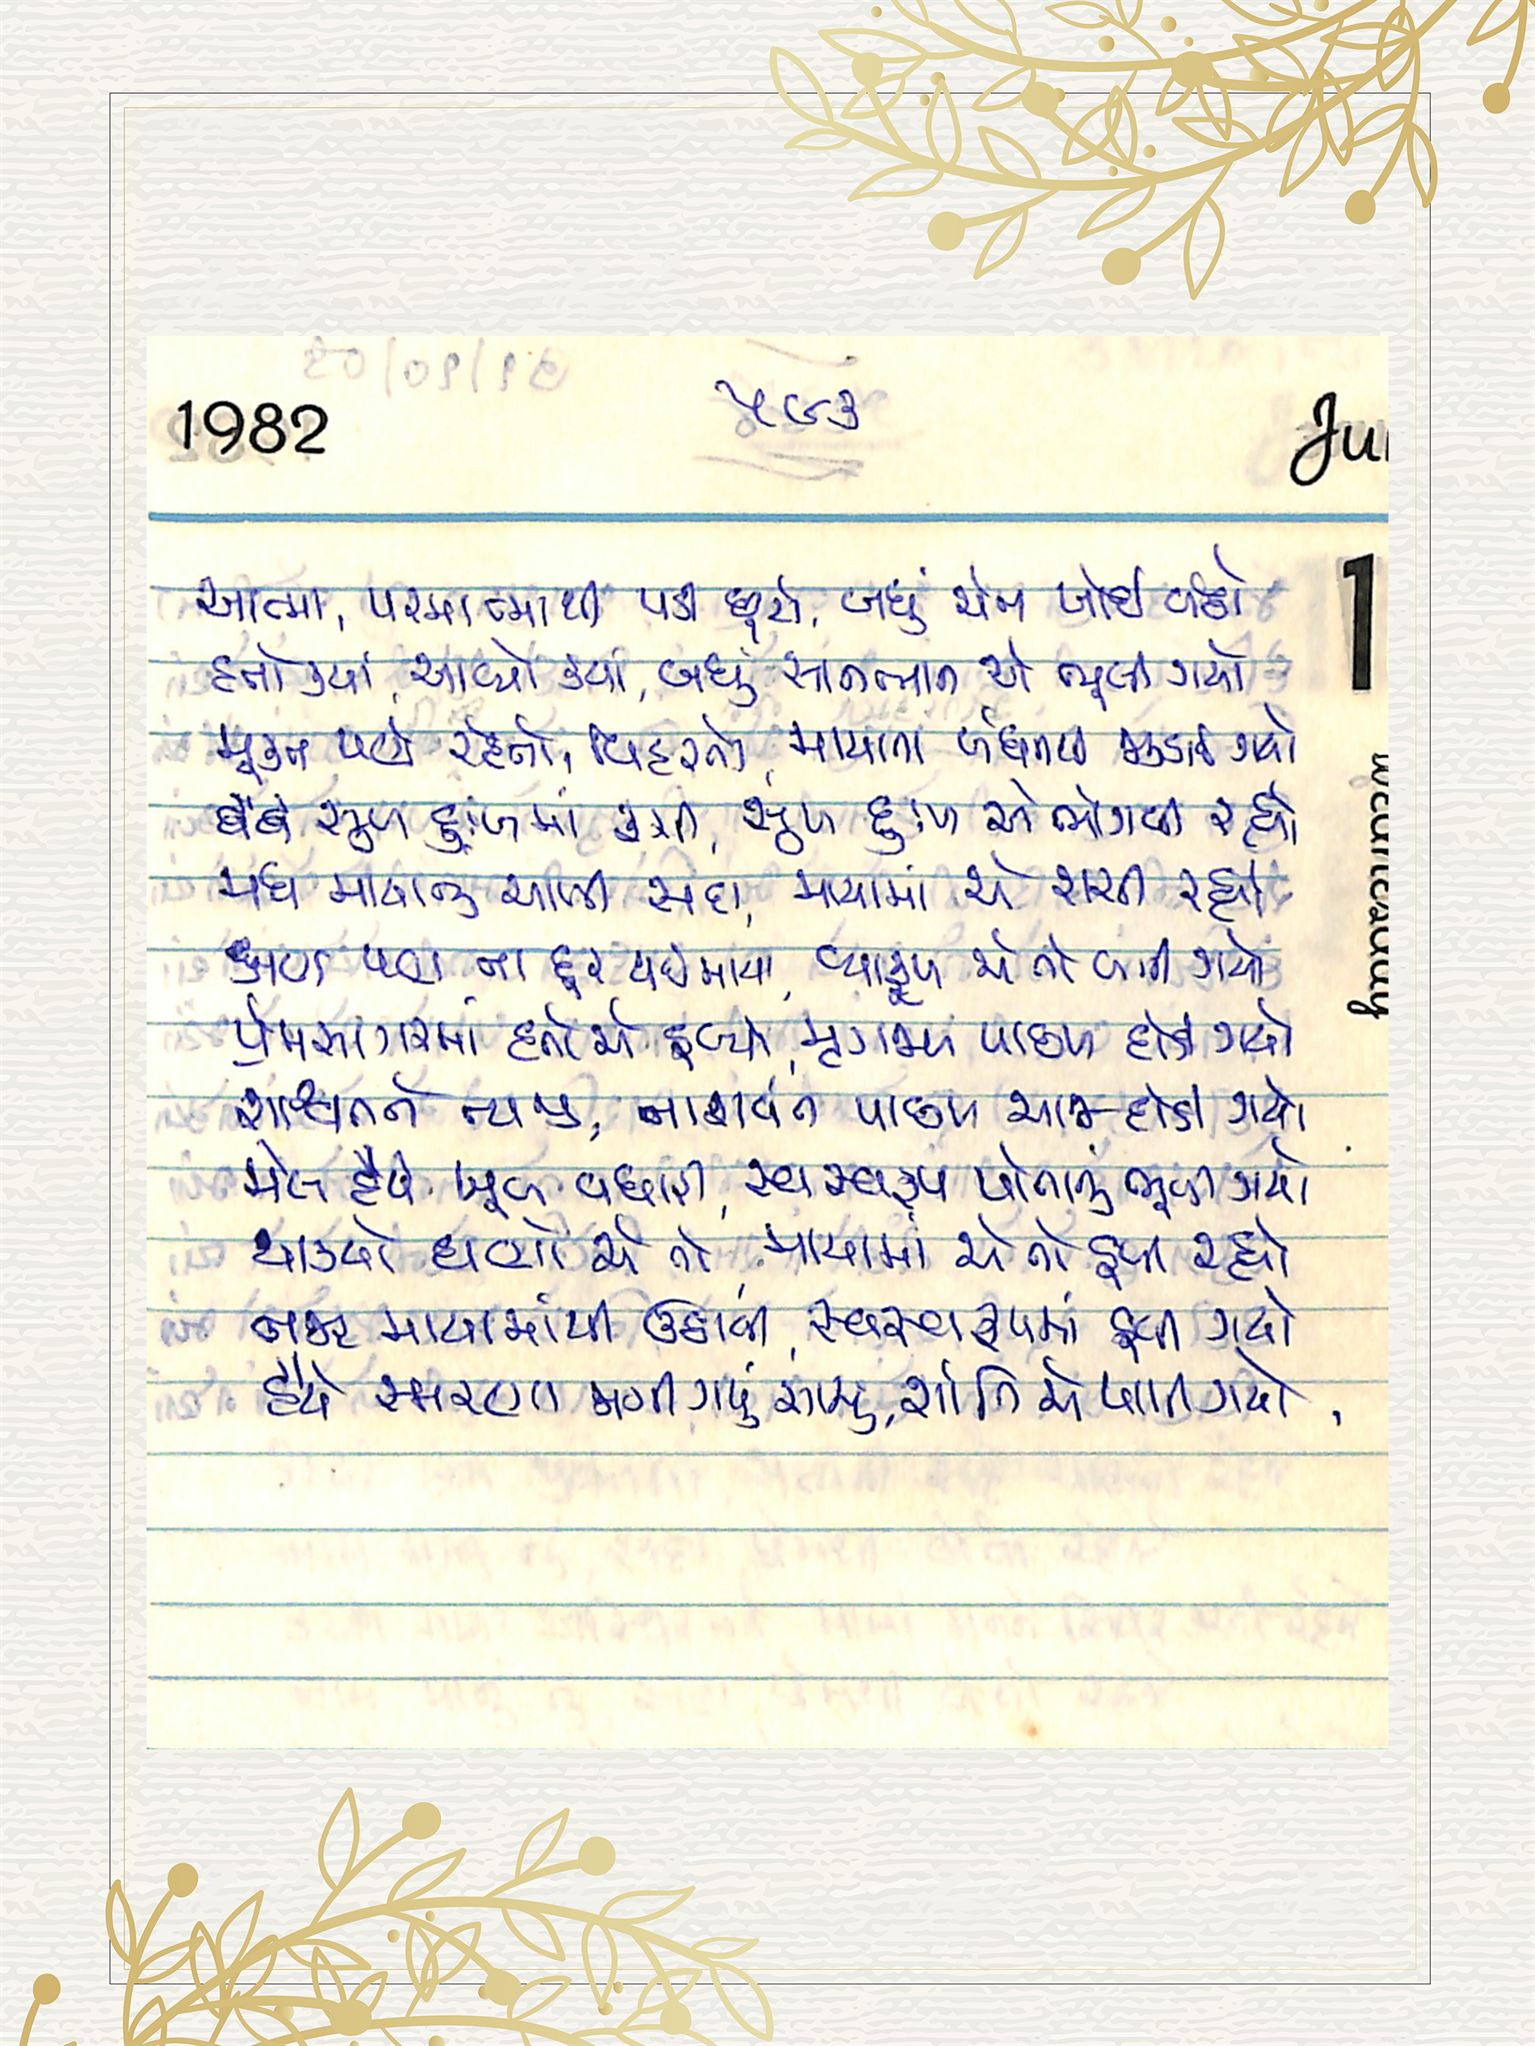 1982
૫૯૩
Ju
1
Wednesday
આત્મા, પરમાત્માથી પડી છૂટો, બધું એ ખોઈ બેઠો
હતો ક્યાં, આવ્યો ક્યાં, બધું સાનભાન એ ભૂલી ગયો
મુક્ત પણે રહેતો, વિહરતો, માયાના બંધનથી જકડાઈ ગયો
હૈયે સુખ દુઃખમાં, સુખ દુઃખ એ ભોગવી રહ્યો
મધ માયાનું ચાખી સદા, માયામાં એ રાચી રહ્યો
ક્ષણ પણ ના દૂર થઈ માયા, વ્યાકુળ એ તો બની ગયો
પ્રેમસાગરમાં હતો એ ડૂબ્યો, મૃગજળ પાછળ દોડી ગયો
શાશ્વતને ત્યજી, નાશવંત પાછળ આજ દોડી ગયો
મેલ હૈયે ખૂબ વધારી, સ્વસ્વરૂપ પોતાનું ભૂલી ગયો
થાક્યો ઘણો એ તો, માયામાં એ તો ડૂબી રહ્યો
નજર માયામાંથી ઉઠાવી, સ્વસ્વરૂપમાં ડૂબી ગયો
હૈયે સ્મરણ જાગી ગયું સાચું, શાંતિ એ પામી ગયો